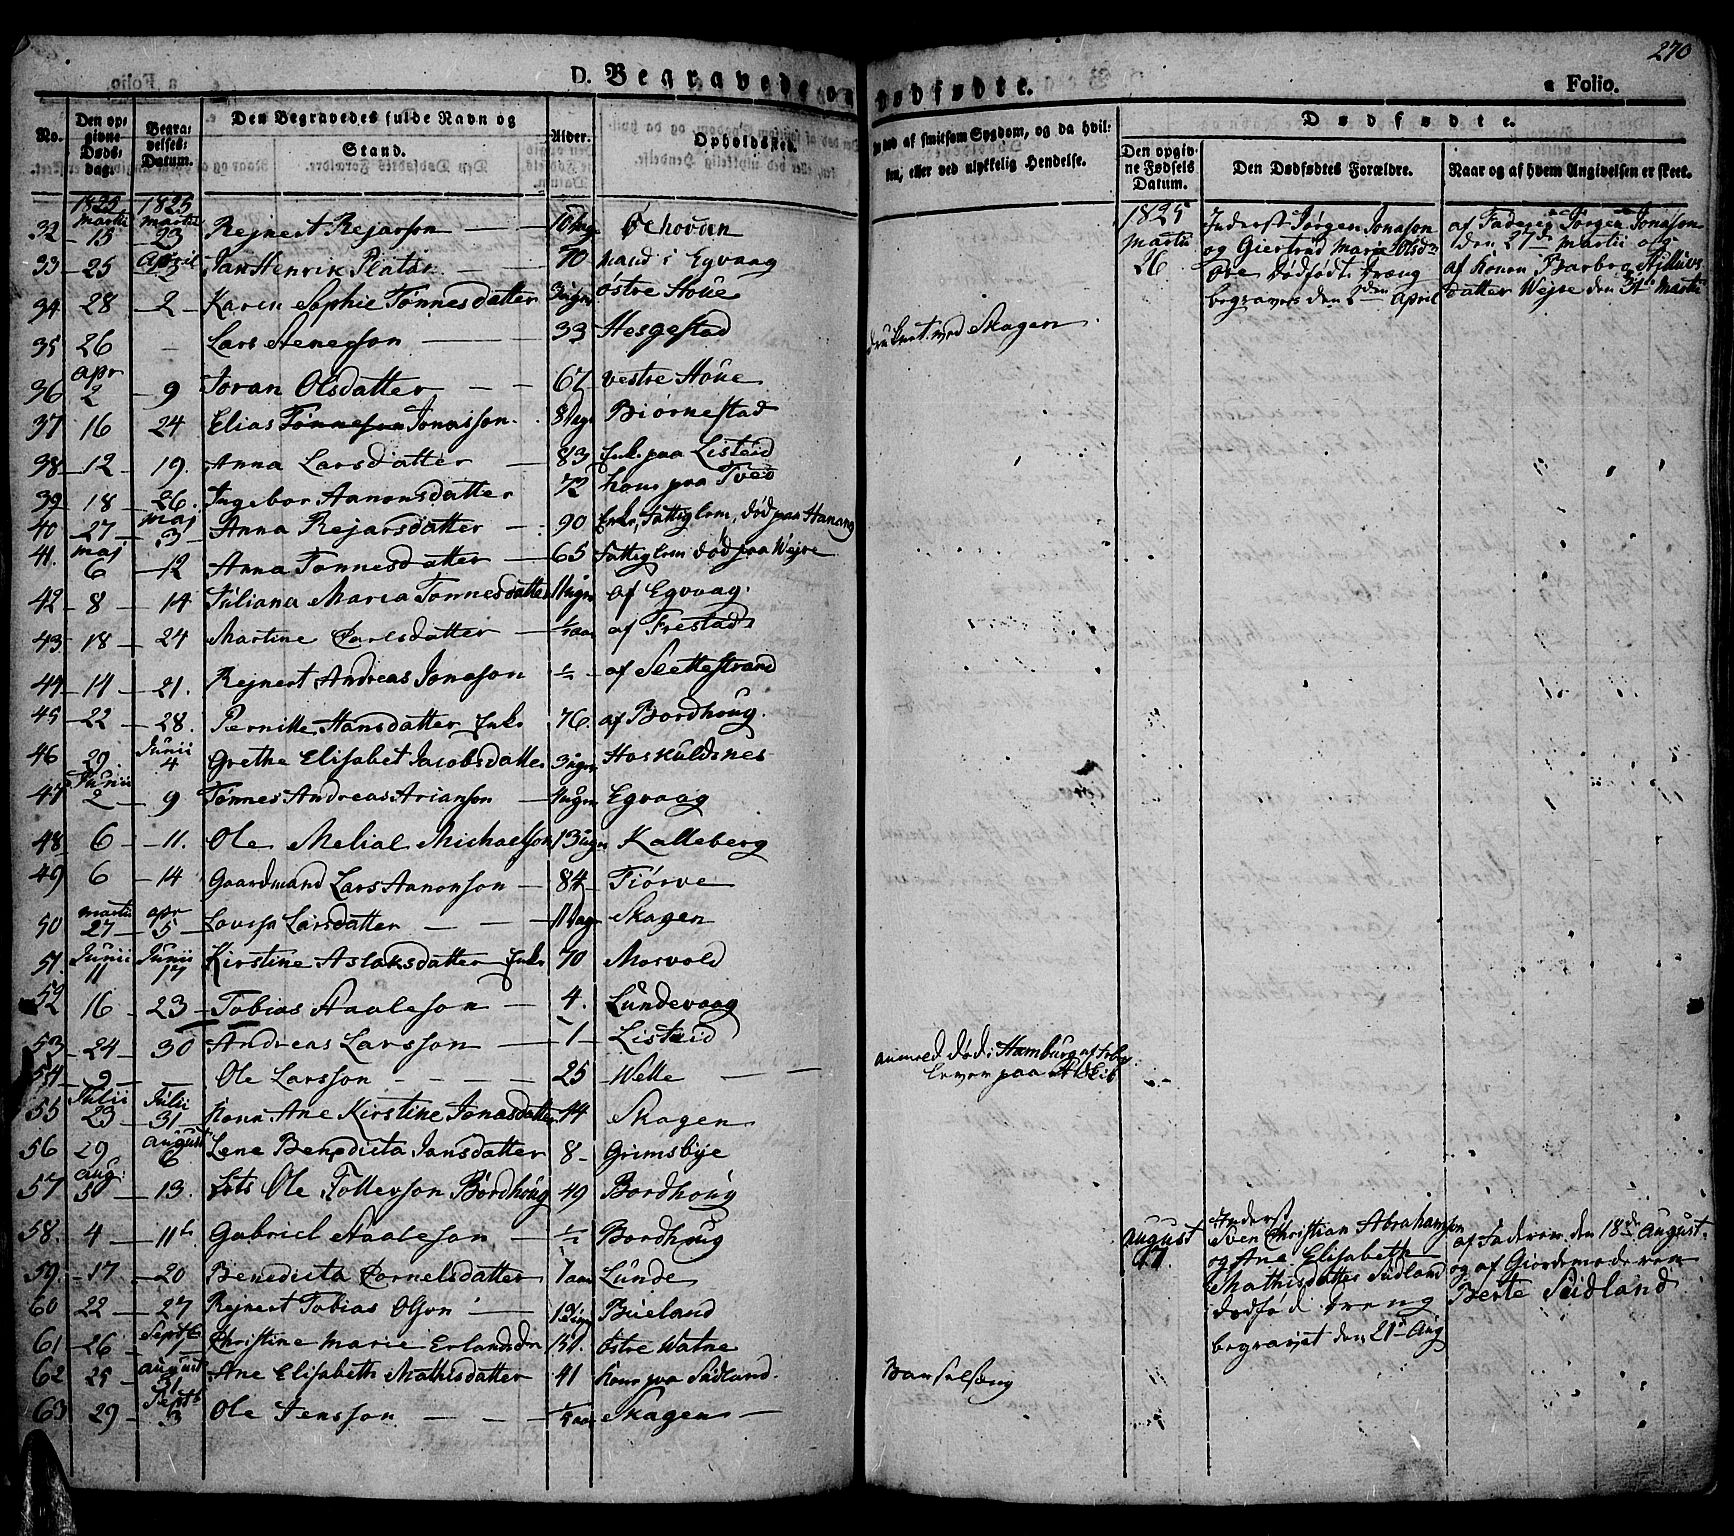 270
D. Begravede og Dødfødte. a Folio.
No. Den opgivne Dødsdag. Begravelses Datum. Den Begravedes fulde Navn og Stand. Alder. Opholdssted.
af smitsom Sygdom, og da hvilken, eller ved ulykkelig Hendelse.
Dødfødte.
Den opgivne Fødsels Datum. Den Dødfødtes Forældre. Naar og af hvem Angivelsen er skeet.
1825 1825
32 martii 15 martii 23 Rejnert Rejarson
33 25 April Jan Henrik Platár 70 mand i Egvaag
34 28 2 Karen Sophie Tønnesdatter østre Houe
35 26 Lars 33 Hesgestad
36 apr 2 9 Joran Olsdatter 67 vestre Houe
37 16 24 Elias Tønneson Jonasson 8 Dage Biørnestad
38 12 19. Anna Larsdatter 83 Enke paa Listeid
39 18 26. Ingebor Aanonsdatter 72 kone paa Tved
40 27 maj 3 Anna Rejarsdatter 90 Enke, Fattiglem, død paa Hanang
41. maj 6 12 Anna Tønnesdatter 65 Fattiglem død paa Wejre
42 8 14 Juliana Maria Tønnesdatter af Egvaag.
43 18 24 Martine Carlsdatter af Frestad
44 14 21. Rejnert Andreas Jonasson ½ af Slettestrand
45 22 28. Pernille Hansdatter Enke 76. af Bordhoug.
46 29 Junii 4 Grethe Elisabet Jacobsdatter 3 ugr Haskuldsnes
47 Junii 2 9 Tønnes Andreas Arianson Egvaag
48 6 11. Ole Melial Michaelson 13 ugr Kalleberg
49 6 14 Gaardmand Lars Aanonson 84 Fiørve
50 martii 27 apr 5 Lovisa Larsdatter 11 Dage Skagen
51. Junii 11 Junii 17 Kirstine Aslaksdatter Enke 70 Mosvold
52 16 23 Tobias Aaaleson 4. Lundevaag
53 24 30 Andreas Larsson 1 Listeid
54 9 Ole Larsson 25 Welle
55 Julii 23 Julii 31 Kone Ane Kirstine Jonasdatter 44 Skagen
56 29 August 6 Lene Benedicta Jansdatter 8 Grimsbye
57 aug: 5 13. Lots Ole Tollefson Bordhoug 49 Bordhoug
58. 4 11 Gabriel Aaaleson ½ Bordhoug
59 17 20 Benedicta Cornelsdatter 7 aar Lunde
60 22 27 Rejnert Tobias Olson Bieland
61 26 Septb Christine Marie Erlandsdr Østre Watne
62 25 august 31 Ane Elisabeth Mathisdatter 41 Kone paa Sudland.
63 29 Septb 3 Ole Jensson Skagen
drukent ved Skagen
anmeld død i Hamburg af
paa
Barselseng
1825 Martii 26 Inderst Jørgen Jonasson
og Giertrud Maria Olsdr
Ore dødfødt dreng
begraves den 2den April
af Faderen Jørgen Jonasson
den 27de Martii og
af Konen Barbro
datter Wejre den 31te Martii
August 17. Inderst
Sven Christian Abrahamson
og Ane Elisabeth
Mathisdatter Sudland
dødfød dreng
begravet den 21de Aug
af Faderen den 18de August
og af Giordemoderen
Berte Sudland